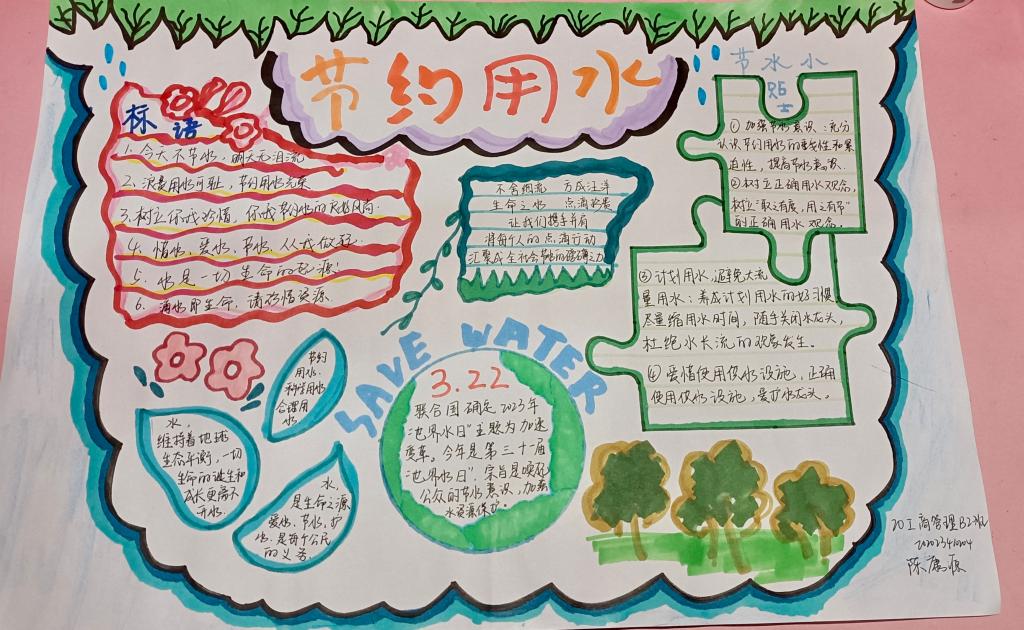 节约用水
标语
1. 今天不节水，明天无泪流
2、浪费用水可耻，节约用水光荣
3、树立惜水意识
4、惜水、爱水、节水，从我做起
5、水是一切生命的起源！
6、滴水即生命，请珍惜资源
不舍细流 方成汪洋
生命之水 点滴珍贵
让我们携手并肩
将每个人的点滴行动
汇聚成全社会节水的磅礴之力
节水小
贴
士
① 加强节水意识：充分
认识节约用水的重要性和紧
迫性，提高节水意识.
② 树立正确用水观念，
树立“取之有度，用之有节”
的正确用水观念。
③ 计划用水，避免大流
量用水：养成计划用水的好习惯
尽量缩用水时间，随手关闭水龙头，
杜绝水长流的现象发生。
④ 爱惜使用供水设施，正确
使用供水设施，爱护水龙头。
SAVE WATER
3.22
联合国确定2023年
“世界水日”主题为加速
变革，今年是第三十一届
“世界水日”，宗旨是唤起
公众的节水意识，加强
水资源保护。
节约
用水.
科学用水
合理用
水.
水，
维持着地球
生态平衡，一切
生命的诞生和
成长更离不
开水.
水，
是生命之源
爱水、节水、护
水.是每个公民
的义务.
20工商管理B2班